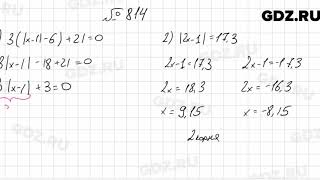 GDZ.RU
№ 814
) 3(|x-1|-6)+21=0
3|x-1|-18+21=0
|x-1|+3=0
2) |2x-1|=17,3
2x-1=17,3 2x-1=-17,3
2x=18,3 2x=-16,3
x=9,15 x=-8,15
2 корня